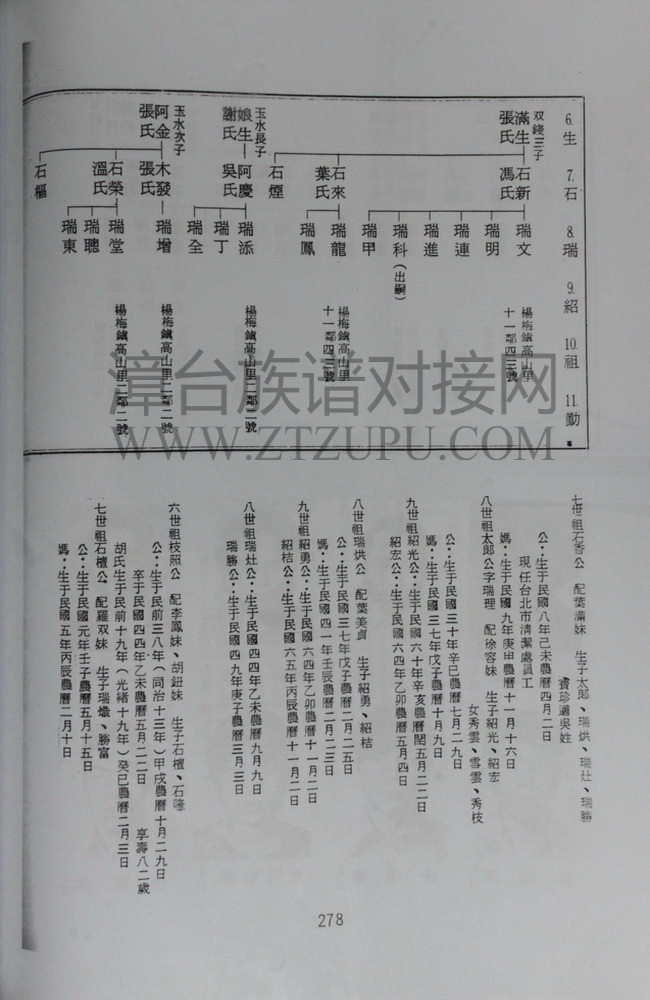 6.生
7.石
8.瑞
9.紹
10.祖
11.勤
双錢三子
滿生
張氏
石新
馮氏
瑞文
瑞明
瑞連
瑞進
瑞科(出嗣)
瑞甲
楊梅鎮高山里
十一鄰四三號
石來
葉氏
瑞龍
瑞鳳
楊梅鎮高山里
十一鄰四三號
石煙
玉水長子
娘生
謝氏
阿慶
吳氏
瑞添
瑞丁
瑞全
楊梅鎮高山里二鄰二號
玉水次子
阿金
張氏
木發
張氏
瑞增
楊梅鎮高山里二鄰二號
石榮
溫氏
瑞堂
瑞聰
瑞東
楊梅鎮高山里二鄰二號
石樞
漳台族谱对接网
WWW.ZTZUPU.COM
七世祖石香公 配葉滿妹 生子太郎、瑞烘、瑞灶、瑞勝
吳姓
公:生于民國八年己未農曆四月二日
現任台北市清潔處員工
媽:生于民國九年庚申農曆十一月十六日
八世祖太郎公字瑞理 配徐容妹 生子紹光、紹宏
女秀雲、雪雲、秀枝
公:生于民國三十年辛巳農曆七月二九日
媽:生于民國三七年戊子農曆七月二九日
九世祖紹光公:生于民國六十年辛亥農曆閏五月二二日
紹宏公:生于民國六四年乙卯農曆五月四日
八世祖瑞烘公 配葉美貞 生子紹勇、紹桔
公:生于民國三七年戊子農曆二月二五日
媽:生于民國四一年壬辰農曆二月二三日
九世祖紹勇公:生于民國六四年乙卯農曆十一月二日
紹桔公:生于民國六五年丙辰農曆十一月二日
八世祖瑞灶公:生于民國四四年乙未農曆九月九日
瑞勝公:生于民國四九年庚子農曆三月三日
六世祖枝照公 配李鳳妹、胡鈕妹 生子石檀、石隆
公:生于民前三八年(同治十三年)甲戌農曆十月二九日
卒于民國四四年乙未農曆五月二二日 享壽八二歲
胡氏生于民前十九年(光緒十九年)癸巳農曆二月三日
七世祖石檀公 配羅双妹 生子瑞熾、勝富
公:生于民國元年壬子農曆五月十五日
媽:生于民國五年丙辰農曆二月十日
278